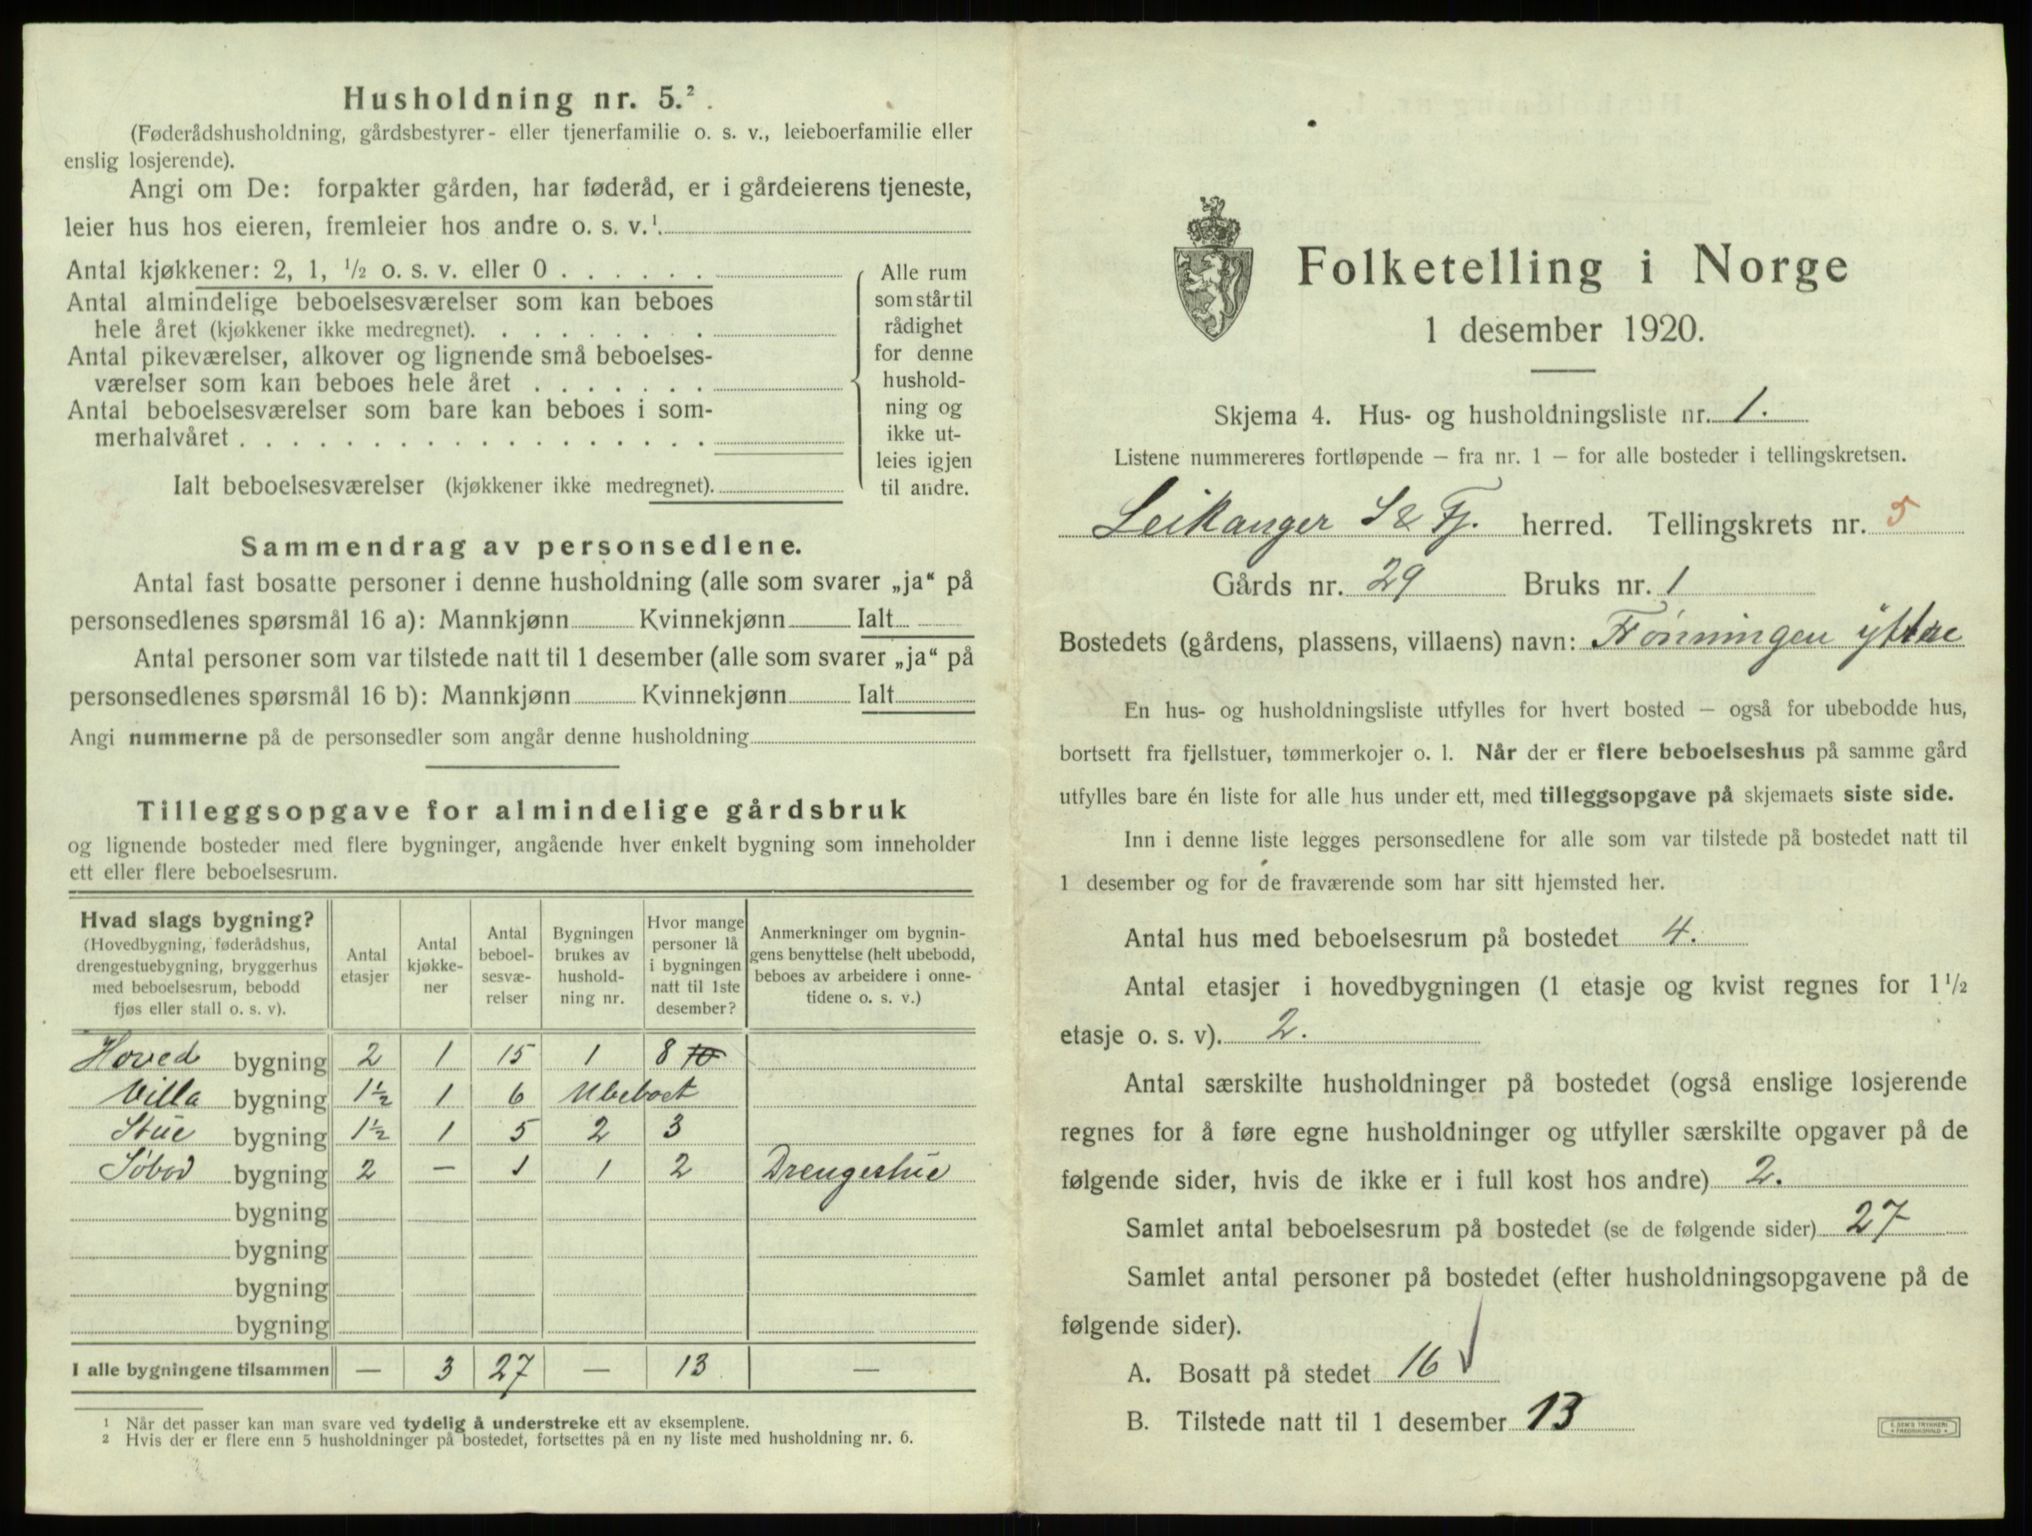 Husholdning nr. 5.²
(Føderådshusholdning, gårdsbestyrer- eller tjenerfamilie o. s. v., leieboerfamilie eller
enslig losjerende).
Angi om De: forpakter gården, har føderåd, er i gårdeierens tjeneste,
leier hus hos eieren, fremleier hos andre o. s. v.¹
Antal kjøkkener: 2, 1, ½ o. s. v. eller 0 . . . . . .
Antal almindelige beboelsesværelser som kan beboes
hele året (kjøkkener ikke medregnet). . . . . . . .
Antal pikeværelser, alkover og lignende små beboelses-
værelser som kan beboes hele året . . . . . . .
Antal beboelsesværelser som bare kan beboes i som-
merhalvåret . . . . . . . . . . . . . . . . . .
Ialt beboelsesværelser (kjøkkener ikke medregnet).
Alle rum
som står til
rådighet
for denne
hushold-
ning og
ikke ut-
leies igjen
til andre.
Sammendrag av personsedlene.
Antal fast bosatte personer i denne husholdning (alle som svarer „ja“ på
personsedlenes spørsmål 16 a): Mannkjønn Kvinnekjønn Ialt
Antal personer som var tilstede natt til 1 desember (alle som svarer „ja“ på
personsedlenes spørsmål 16 b): Mannkjønn Kvinnekjønn Ialt
Angi nummerne på de personsedler som angår denne husholdning
Tilleggsopgave for almindelige gårdsbruk
og lignende bosteder med flere bygninger, angående hver enkelt bygning som inneholder
ett eller flere beboelsesrum.
Hvad slags bygning?
(Hovedbygning, føderådshus,
drengestuebygning, bryggerhus
med beboelsesrum, bebodd
fjøs eller stall o. s. v).
Antal
etasjer
Antal
kjøkke-
ner
Antal
beboel-
sesvæ-
relser
Bygningen
brukes av
hushold-
ning nr.
Hvor mange
personer lå
i bygningen
natt til 1ste
desember?
Anmerkninger om bygnin-
gens benyttelse (helt ubebodd,
beboes av arbeidere i onne-
tidene o. s. v.)
Hoved bygning 2 1 15 1 8 10
Villa bygning 1½ 1 6 Ubeboet
Stue bygning 1½ 1 5 2 3
Søbod bygning 2 — 1 1 2 Drengestue
bygning
bygning
bygning
bygning
I alle bygningene tilsammen — 3 27 — 13 —
¹ Når det passer kan man svare ved tydelig å understreke ett av eksemplene.
² Hvis der er flere enn 5 husholdninger på bostedet, fortsettes på en ny liste med husholdning nr. 6.
Folketelling i Norge
1 desember 1920.
Skjema 4. Hus- og husholdningsliste nr. 1.
Listene nummereres fortløpende – fra nr. 1 – for alle bosteder i tellingskretsen.
Leikanger S & Fj. herred. Tellingskrets nr. 5
Gårds nr. 29 Bruks nr. 1
Bostedets (gårdens, plassens, villaens) navn: Frønningen ytre
En hus- og husholdningsliste utfylles for hvert bosted – også for ubebodde hus,
bortsett fra fjellstuer, tømmerkojer o. l. Når der er flere beboelseshus på samme gård
utfylles bare én liste for alle hus under ett, med tilleggsopgave på skjemaets siste side.
Inn i denne liste legges personsedlene for alle som var tilstede på bostedet natt til
1 desember og for de fraværende som har sitt hjemsted her.
Antal hus med beboelsesrum på bostedet 4.
Antal etasjer i hovedbygningen (1 etasje og kvist regnes for 1½
etasje o. s. v). 2.
Antal særskilte husholdninger på bostedet (også enslige losjerende
regnes for å føre egne husholdninger og utfyller særskilte opgaver på de
følgende sider, hvis de ikke er i full kost hos andre) 2.
Samlet antal beboelsesrum på bostedet (se de følgende sider) 27
Samlet antal personer på bostedet (efter husholdningsopgavene på de
følgende sider).
A. Bosatt på stedet 16
B. Tilstede natt til 1 desember 13
E. SEM'S TRYKKERI
FREDRIKSHALD